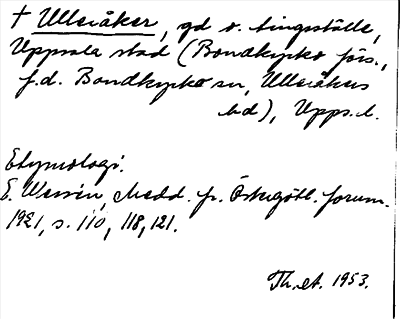 † Ulleråker, gd o. tingsställe,
Uppsala stad (Bondkyrko förs.,
f.d. Bondkyrko sn, Ulleråkers
hd), Upps. l.
Etymologi.
E. Wessén, Medd. fr. Östergötl. fornm.
1921, s. 110, 118, 121.
Th. 1953.